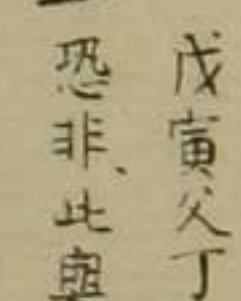 戊寅父丁
恐非、此與